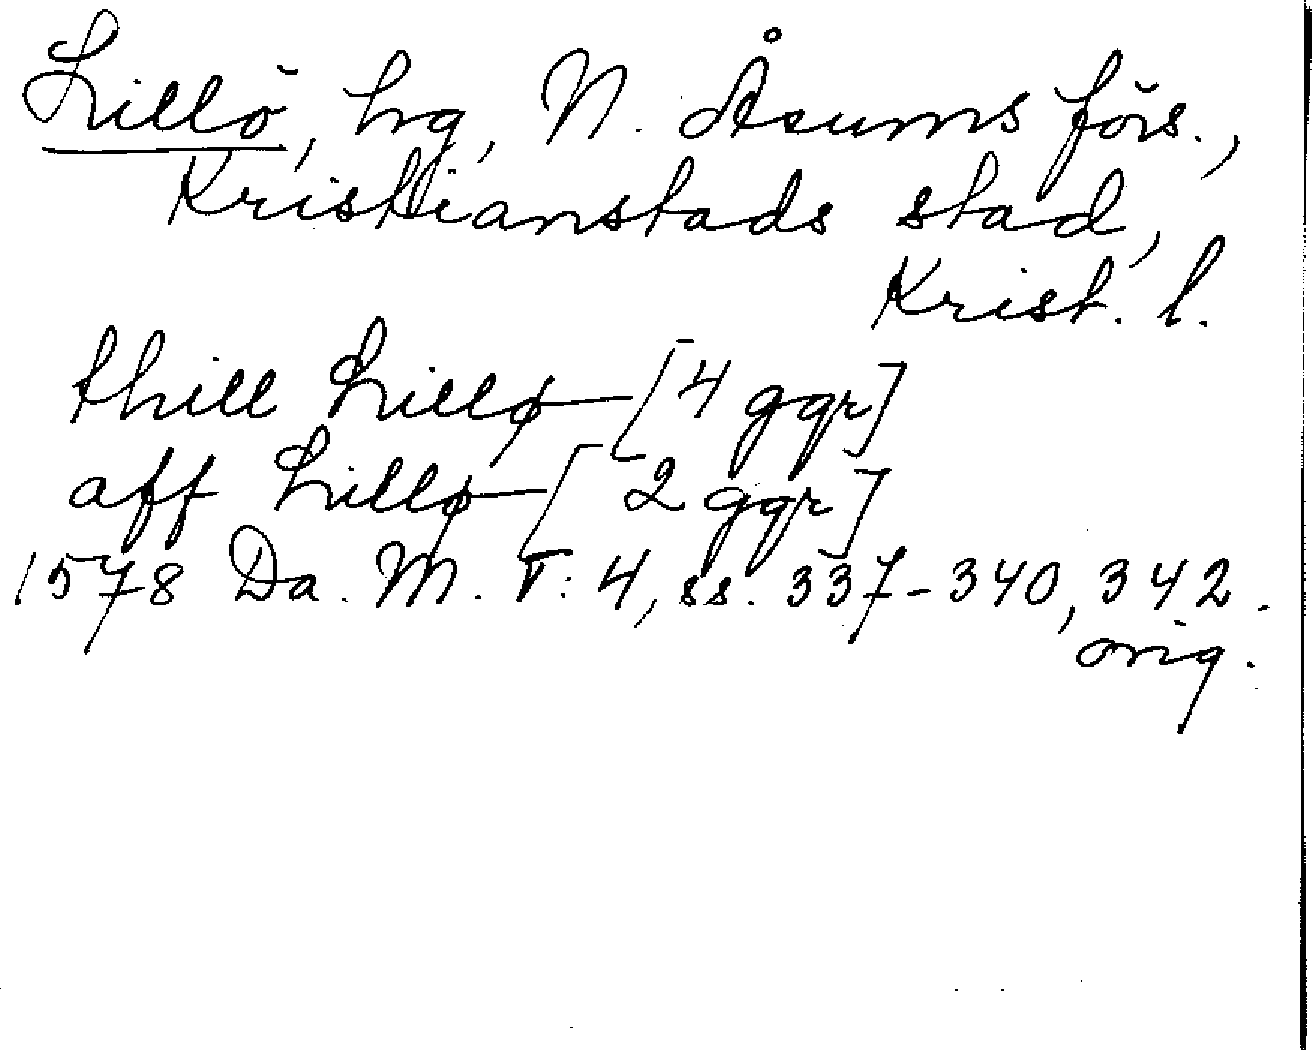 Lillö, hg, N. Åsums förs.,
Kristianstads stad,
Krist. l.
thill Lillø [4 ggr]
aff Lillø [2 ggr]
1578 Da. M. T: 4, ss. 337-340, 342.
orig.